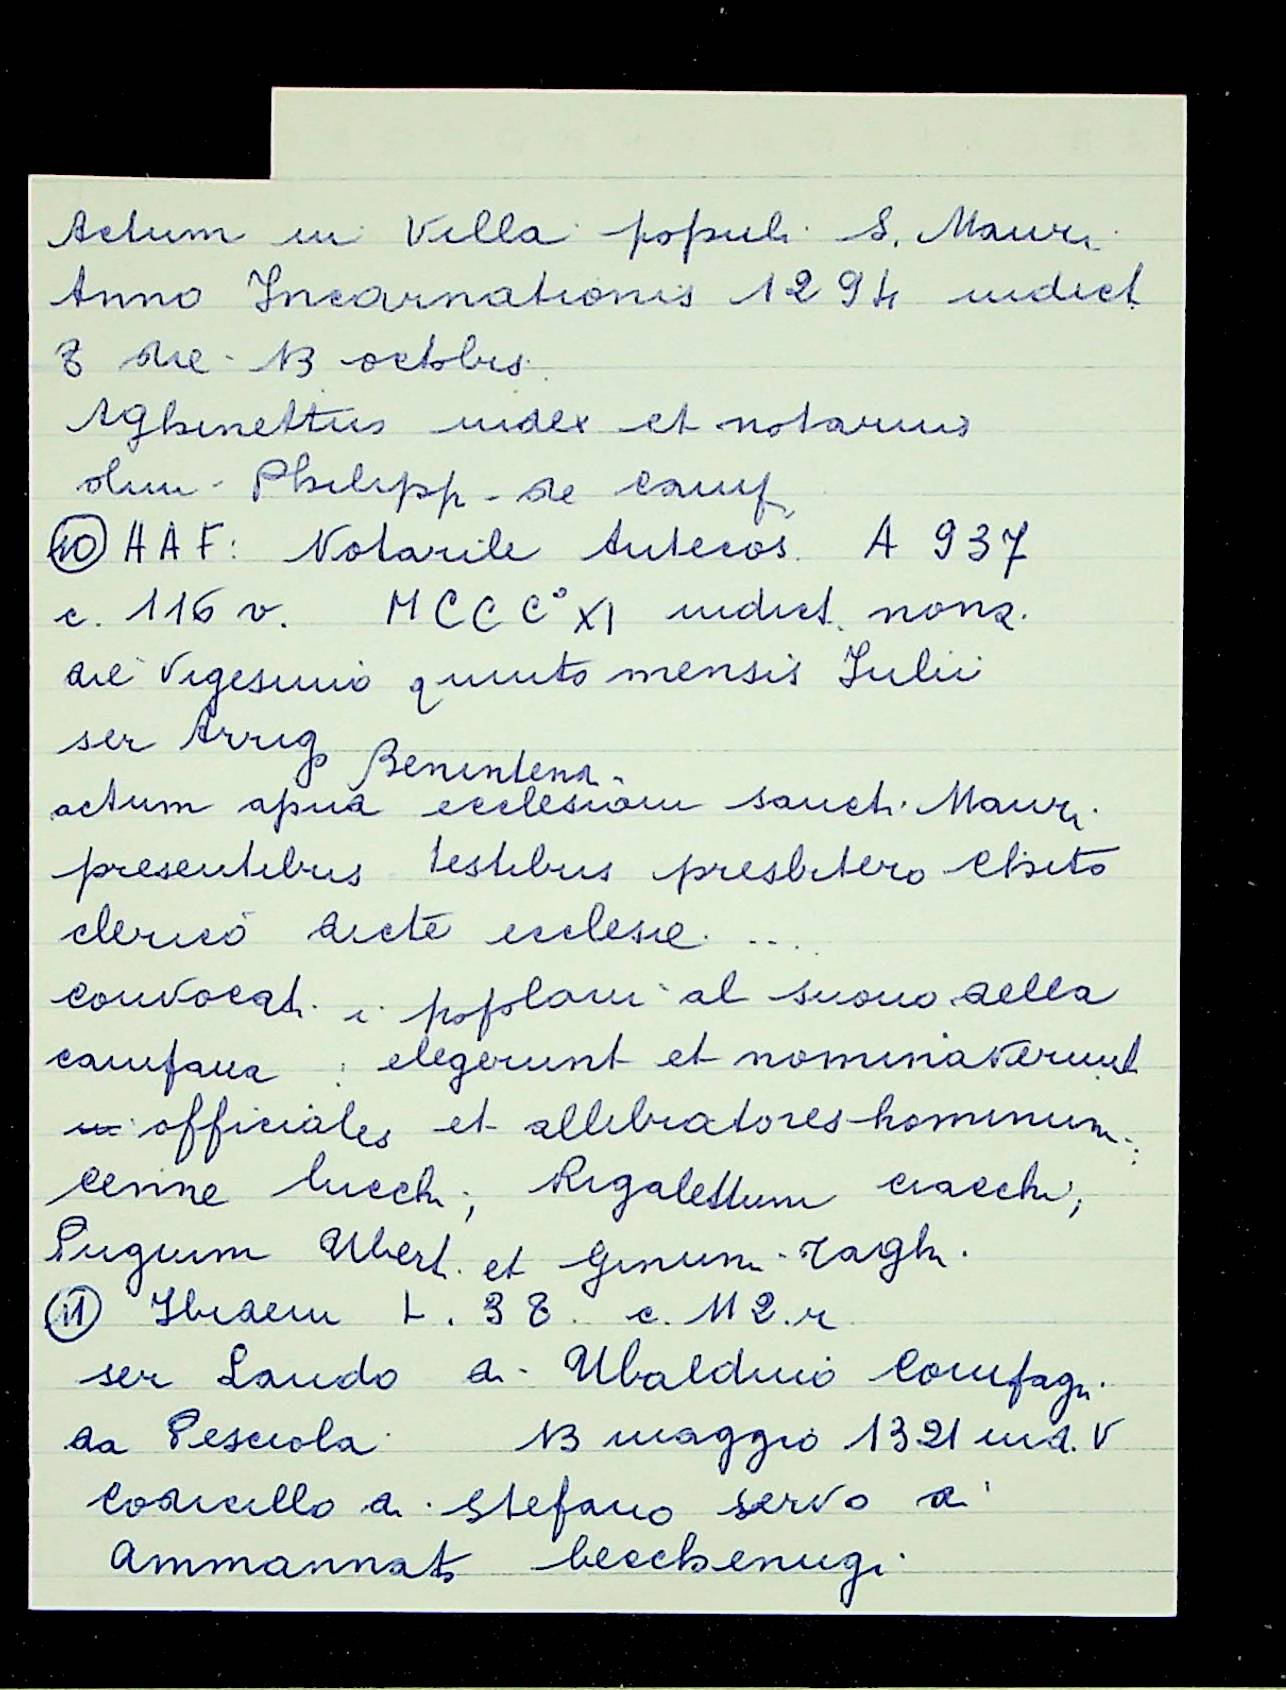 Actum in Villa populi S. Mauri
Anno Incarnationis 1294 indict
8 die 13 octobris.
Aghinettus iudex et notarius
olim Philipp. de Camp.
(10) AAF: Notarile Antecos. A 937
c. 116 v. MCCC°XI indict. nona.
die vigesimo quinto mensis Iulii
ser Arrigo Benintend.
actum apud ecclesiam sancti Mauri
presentibus testibus presbitero Chito
clerico dicte ecclesie. ...
convocati i popolani al suono della
campana : elegerunt et nominaverunt
officiales et allibratores hominum:
Cenne lucchi; Rigalettum ciacchi;
Puguim Uberti et Ginum
(11) Ibidem L. 38. c. 112.r
ser Lando di Ubaldino Compagni
da Pesciola 13 maggio 1321 ind. V
Codicillo di Stefano servo di
Ammannato becchenugi